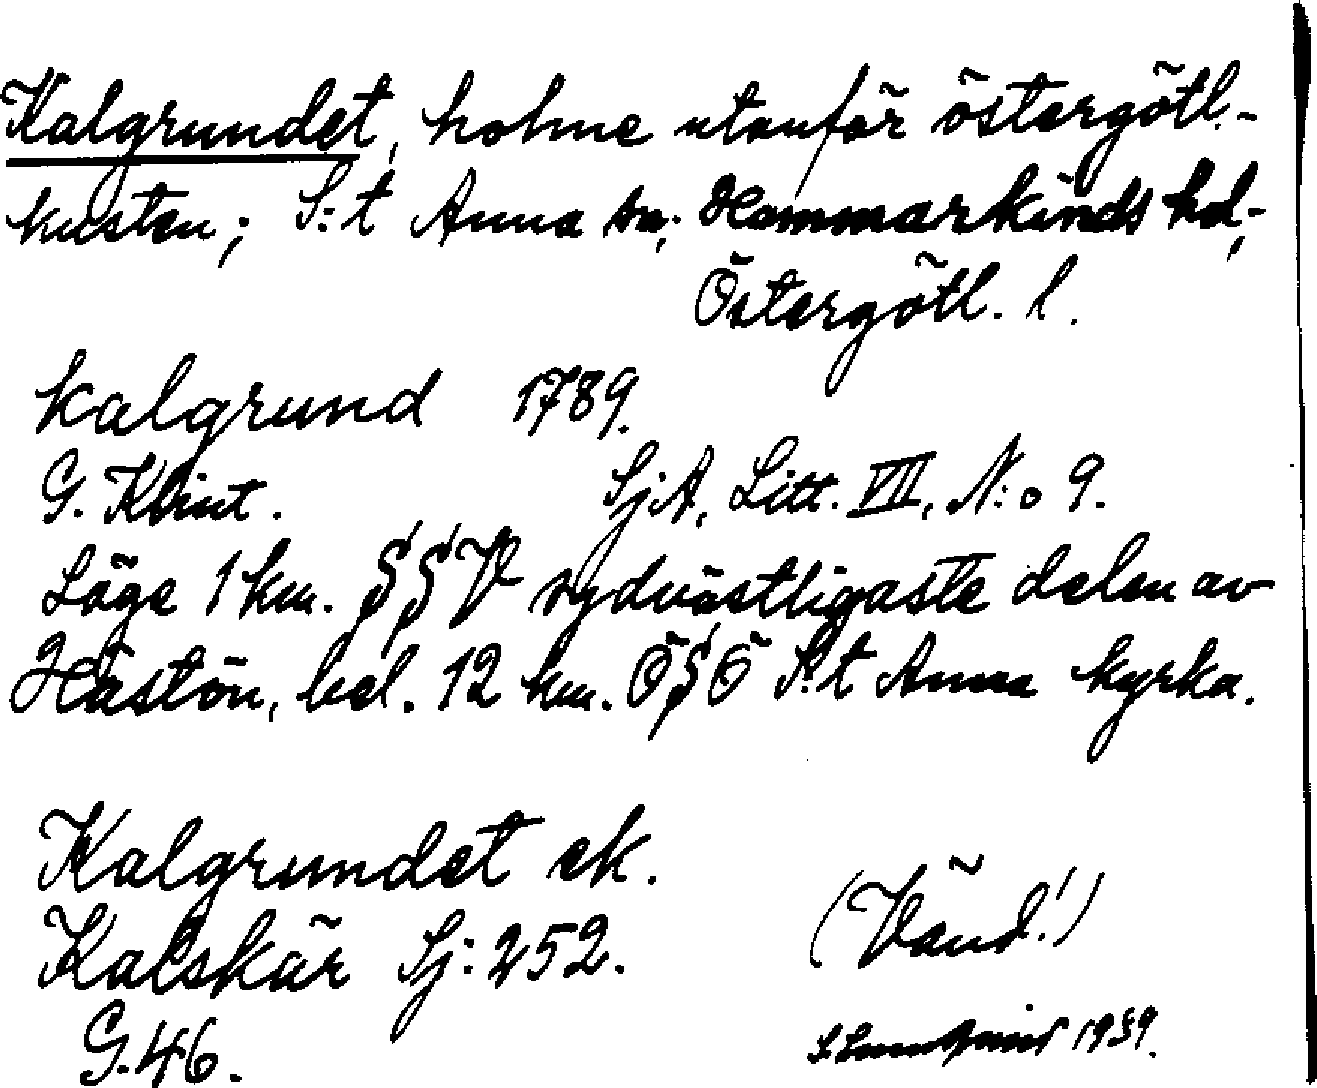 Kalgrundet, holme utanför östergötl.-
kusten; S:t Anna sn; Hammarkinds hd,-
Östergötl. l.
Kalgrund 1789.
G. Klint. SjA, Litt. VII, N:o 9.
Läge 1 km. SSV sydvästligaste delen av
Hästön, bel. 12 km. ÖSÖ S:t Anna kyrka.
Kalgrundet ek.
Kalskär Sj: 252.
(Vänd!)
G.46.
1939.